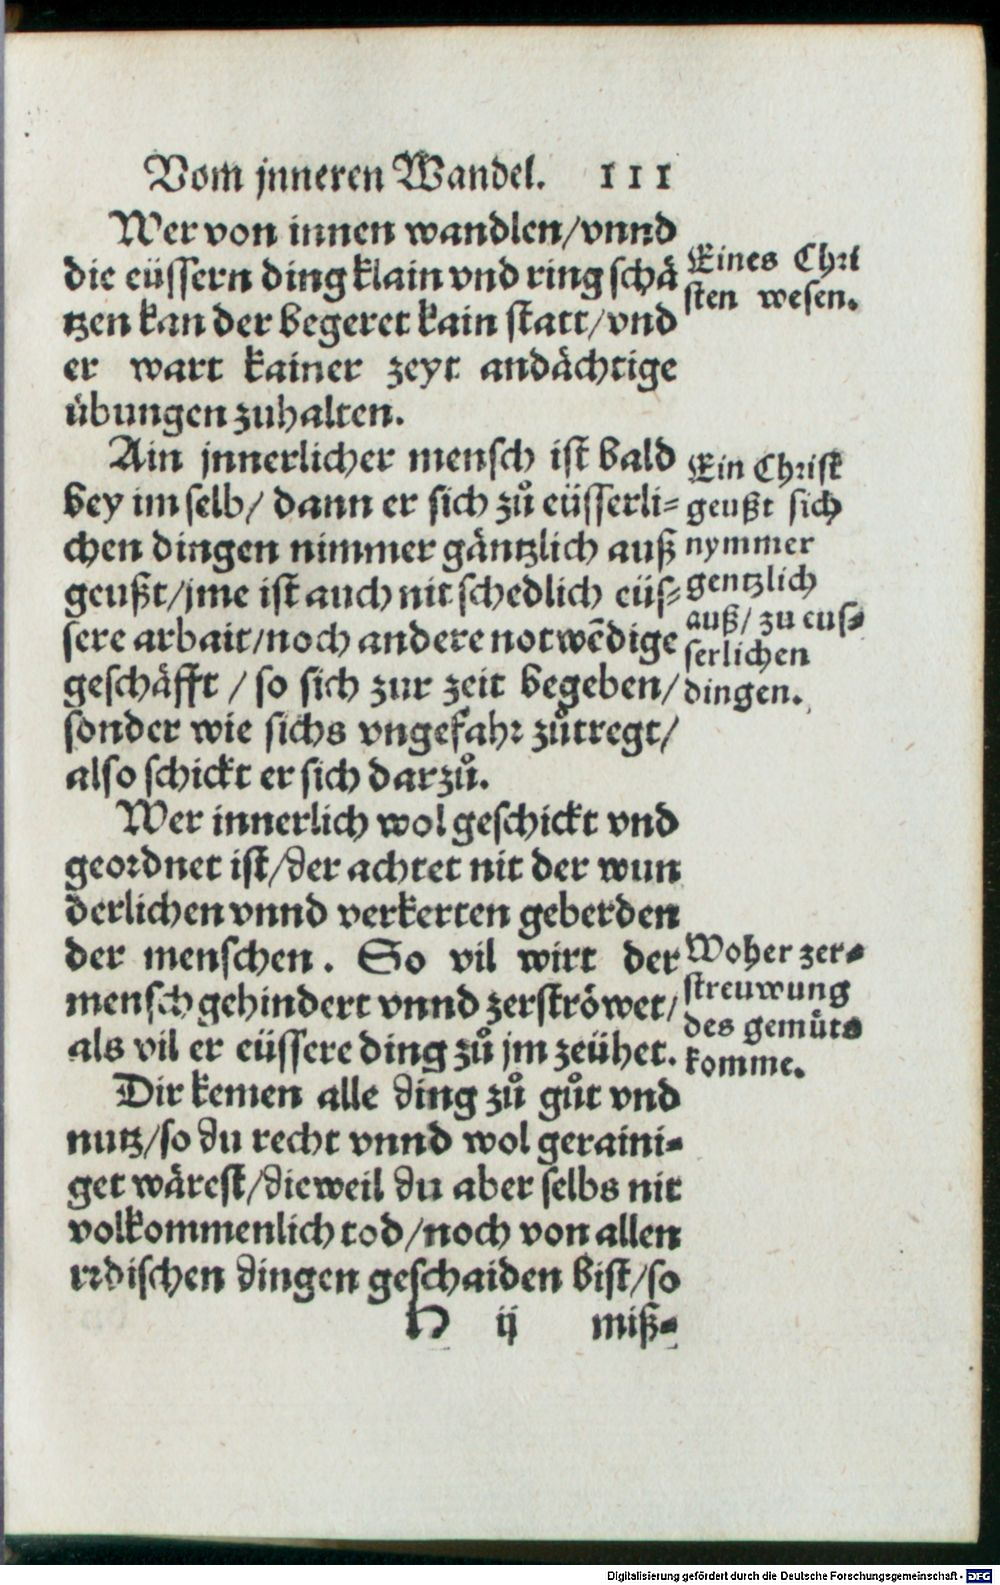 Vom jnneren Wandel. 111
Wer von innen wandlen/vnnd
die eüssern ding klain vnd ring schä
tzen kan der begeret kain statt/vnd
er wart kainer zeyt andächtige
übungen zuhalten.
Eines Chri
sten wesen.
Ain jnnerlicher mensch ist bald
bey im selb/ dann er sich zů eüsserli-
chen dingen nimmer gäntzlich auß
geußt/jme ist auch nit schedlich eüs-
sere arbait/noch andere notwẽdige
geschäfft / so sich zur zeit begeben/
sonder wie sichs vngefahr zůtregt/
also schickt er sich darzů.
Ein Christ
geußt sich
nymmer
gentzlich
auß/ zu eus-
serlichen
dingen.
Wer innerlich wol geschickt vnd
geordnet ist/der achtet nit der wun
derlichen vnnd verkerten geberden
der menschen. So vil wirt der
mensch gehindert vnnd zerströwet/
als vil er eüssere ding zů jm zeühet.
Woher zer-
streuwung
des gemüts
komme.
Dir kemen alle ding zů gůt vnd
nutz/so du recht vnnd wol geraini-
get wärest/dieweil du aber selbs nit
volkommenlich tod/noch von allen
irrdischen dingen geschaiden bist/so
ij miß-
Digitalisierung gefördert durch die Deutsche Forschungsgemeinschaft - DFG